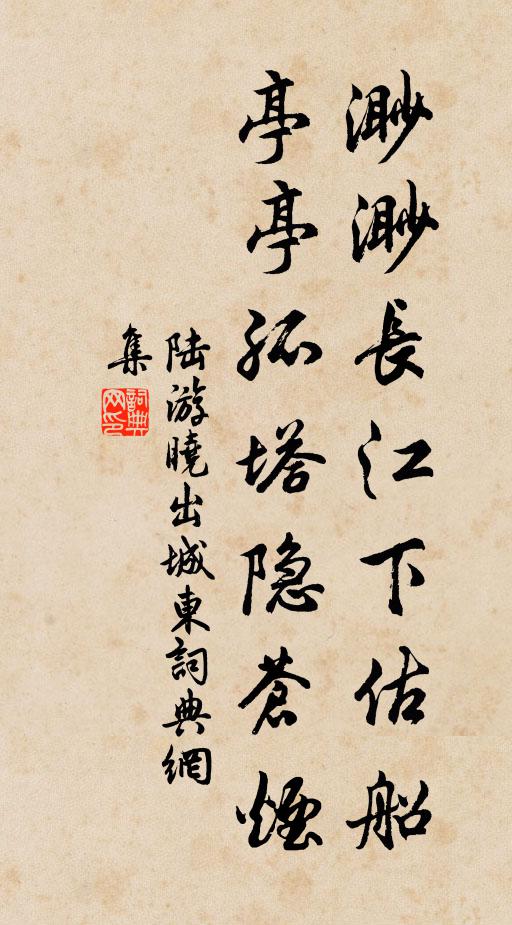 渺渺長江下估船
亭亭孤塔隐蒼煙
陆游曉出城東詞典網
集
詞典
网印